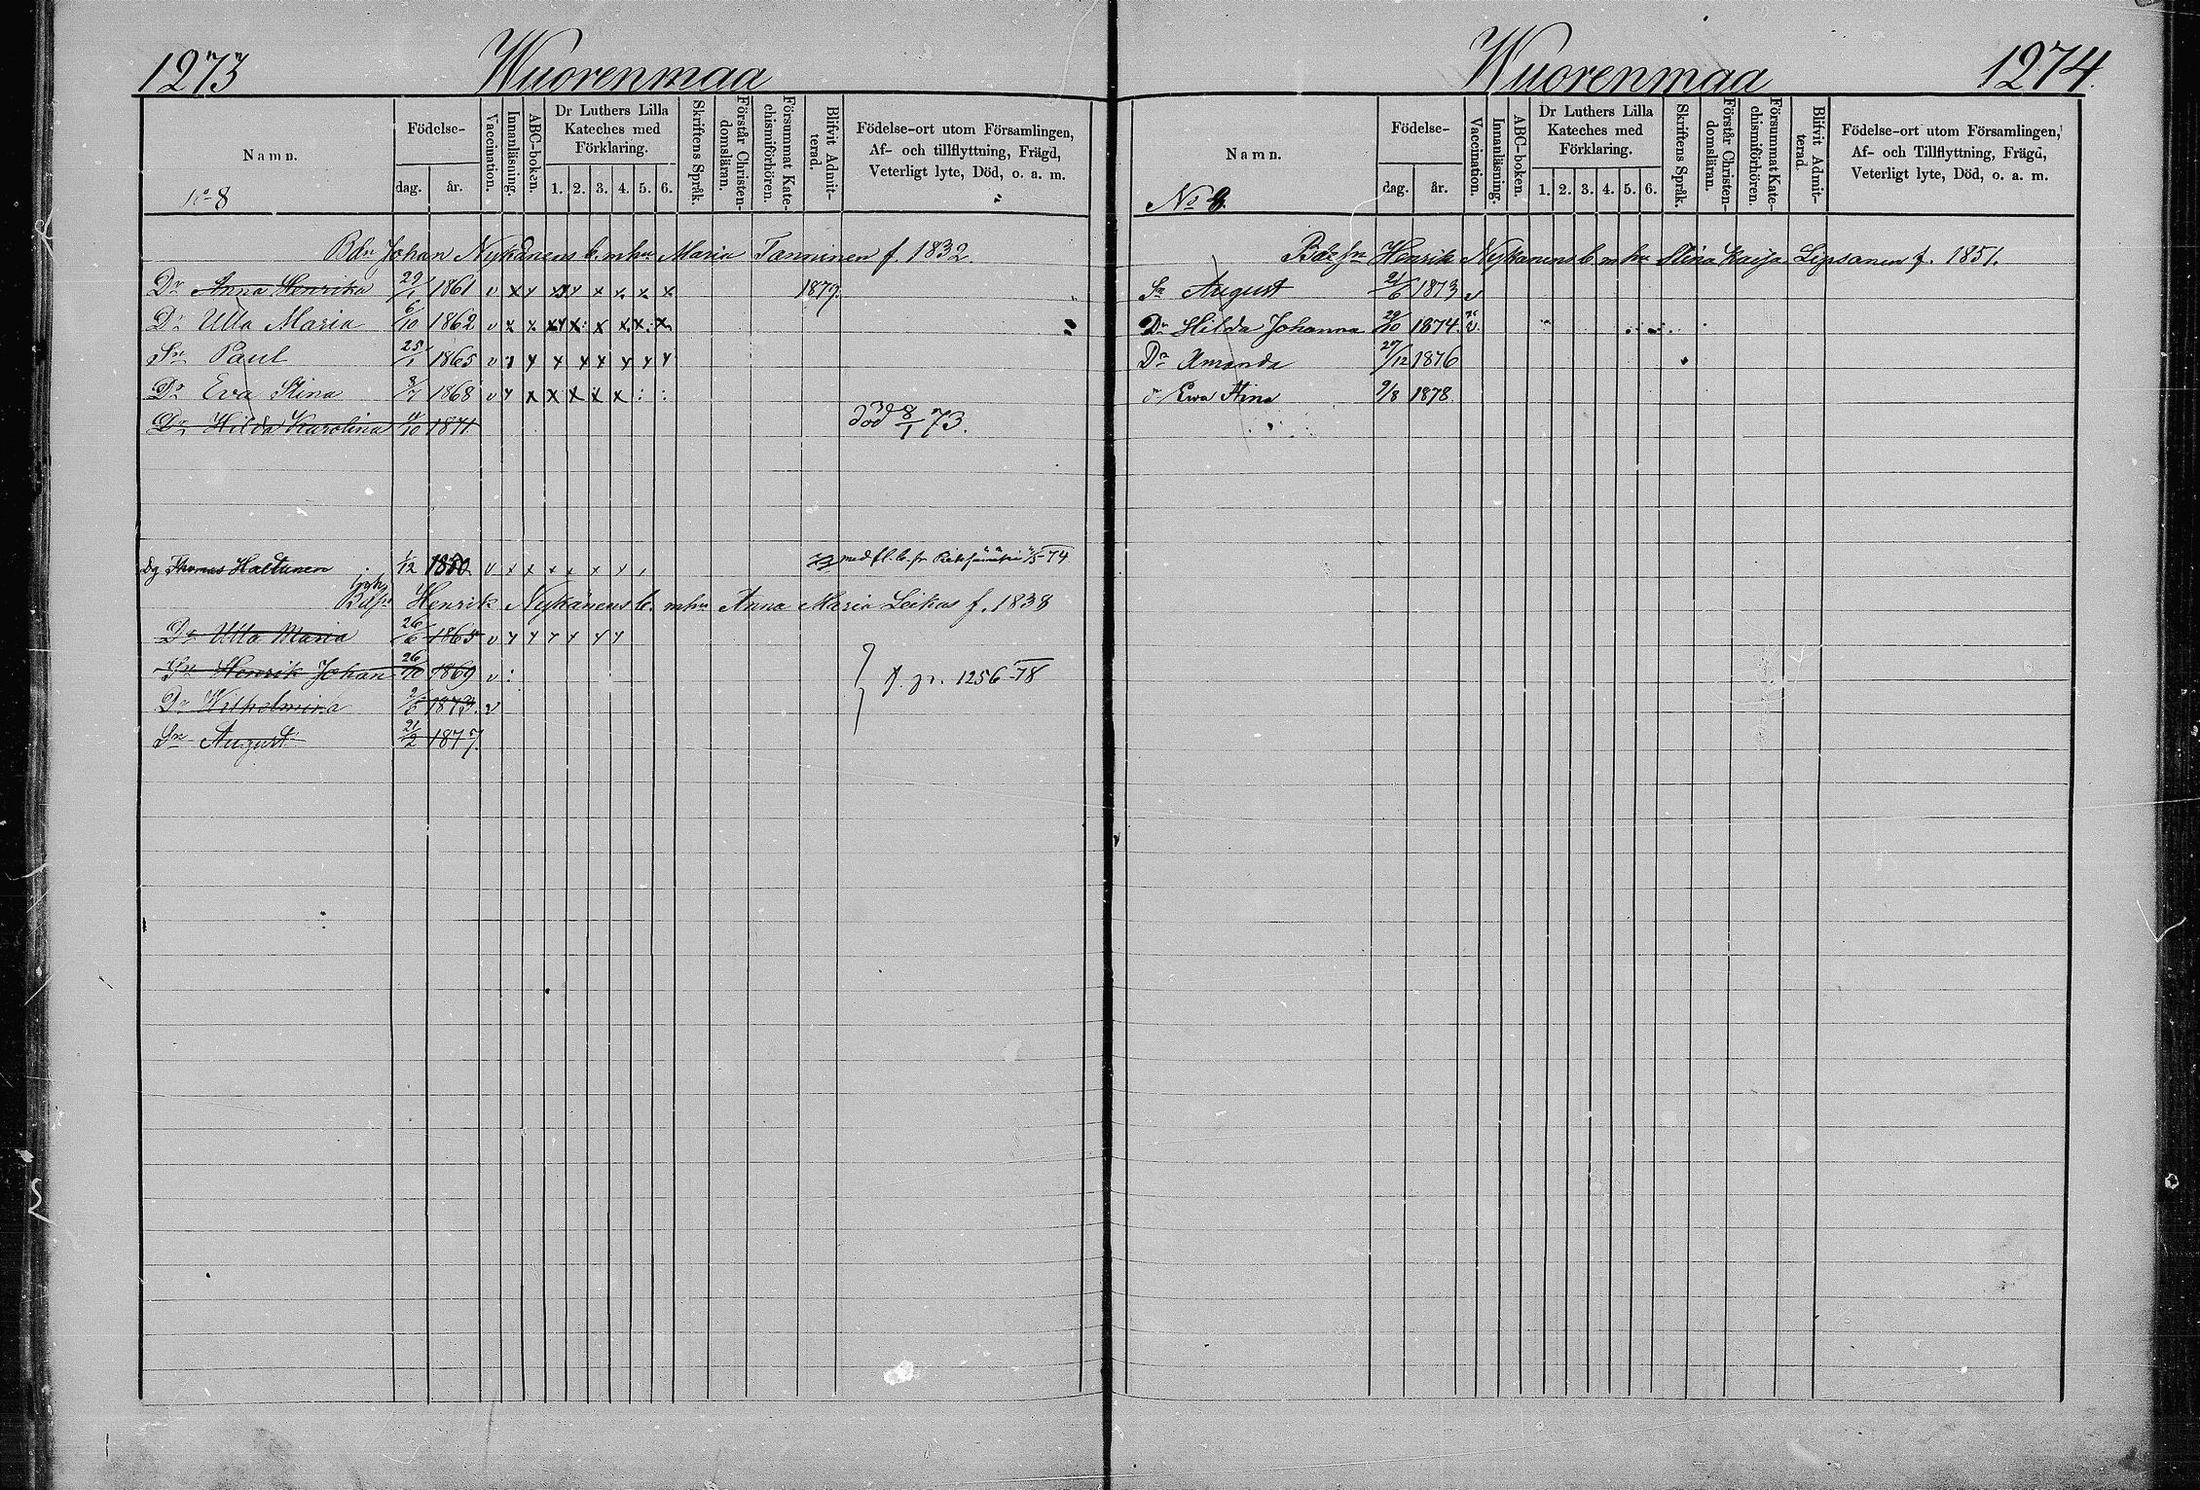 1273 Wuorenmaa
Namn.
No 8
Födelse-
dag. år.
Vaccination.
Innanläsning.
ABC-boken.
Dr Luthers Lilla
Kateches med
Förklaring.
1. 2. 3. 4. 5. 6.
Skriftens Språk.
Förstår Christen-
domsläran.
Försummat Kate-
chismiförhören.
Blifvit Admit-
terad.
Födelse-ort utom Församlingen,
Af- och tillflyttning, Frägd,
Veterligt lyte, Död, o. a. m.
Bdn Johan Nykänens b. m hu Maria Tanninen f. 1832.
Dr Anna Henrika 29/1 1861 v x x x x x x x x 1879.
Dr Ulla Maria 6/10 1862 v x x x x x x x x
Sn Paul 25/1 1865 v x x x x x x x
Dr Eva Stina 3/7 1868 v x x x x x x : :
Dr Hilda Karolina 11/10 1871 död 8/1 73.
Dg Thomas Haltunen 1/12 1850. v x x x x x x med fl. b. fr 74
Bdsn Henrik Nykänens b. m hu Anna Maria Leskas f. 1838
Dr Ulla Maria 26/6 1865 v x x x x x x
Sn Henrik Johan 26/10 1869 v : f. p. 1256-78
Dr Wilhelmina 1873. v
Sn August 21/2 1877.
Wuorenmaa 1274.
Namn.
No 8.
Födelse-
dag. år.
Vaccination.
Innanläsning.
ABC-boken.
Dr Luthers Lilla
Kateches med
Förklaring.
1. 2. 3. 4. 5. 6.
Skriftens Språk.
Förstår Christen-
domsläran.
Försummat Kate-
chismiförhören.
Blifvit Admit-
terad.
Födelse-ort utom Församlingen,
Af- och Tillflyttning, Frägd,
Veterligt lyte, Död, o. a. m.
Henrik Nykänens b m hu Stina Kaija Lipsanen f. 1851.
Sn August 21/6 1873 v
Dr Hilda Johanna 29/10 1874. v
Dr Amanda 27/12 1876
Ewa Stina 9/8 1878.